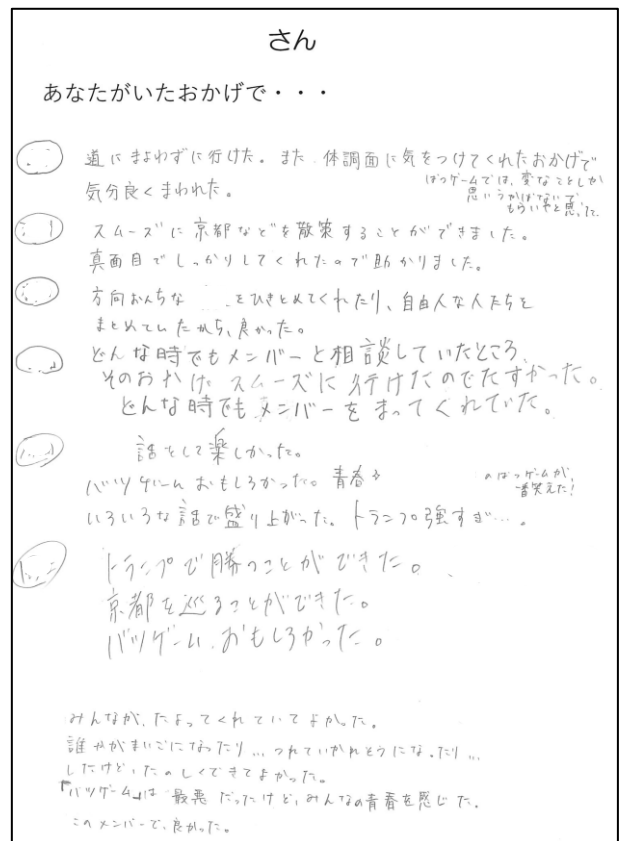 さん
あなたがいたおかげで・・・
道にまよわずに行けた。また 体調面に気をつけてくれたおかげで
気分良くまわれた。
ばつゲームでは、変なことしか
思いうかばないで、
もういいやと思った。
スムーズに京都などを散策することができました。
真面目でしっかりしてくれたので助かりました。
方向おんちな をひきとめてくれたり、自由人な人たちを
まとめていたから、良かった。
どんな時でもメンバーと相談していたところ、
そのおかげ スムーズに行けたのでたすかった。
どんな時でもメンバーをまってくれていた。
話をして楽しかった。
バツゲームおもしろかった。青春
のばつゲームが、
一番笑えた!
いろいろな話で盛り上がった。トランプ強すぎ…。
トランプで勝つことができた。
京都を巡ることができた。
バツゲーム、おもしろかった。
みんなが、たよってくれていてよかった。
誰かがまいごになったり…つれていかれそうになったり…
したけど、たのしくできてよかった。
「バツゲーム」は 最悪 だったけど、みんなの青春を感じた。
このメンバーで、良かった。